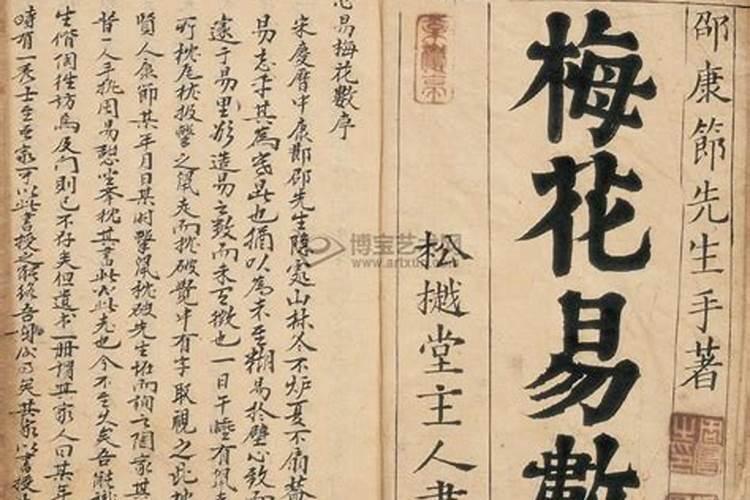 邵康節先生手著
梅花易數
松樾堂主人書
心易梅花數序
宋慶曆中康節邵先生隱處山林冬不炉夏不扇蓋
易忘乎其為寒暑也猶以為未至糊易於壁心致而
邃于易里欲造易之數而未有徵也一日午睡有鼠走
所枕瓦枕投擊之鼠走而枕破覺中有字取視之此枕
賢人康節某年月日某时擊鼠枕破先生怪而詢之陶家其
昔一人手执周易憩坐举枕其書此必此老也今不至久矣吾能識
生偕往訪焉及门則已不存矣但遺书一册謂其家人曰某年
時有一秀士至吾家可以此書授之能終吾身矣其家以書授
博宝艺术网
www.artxun.com